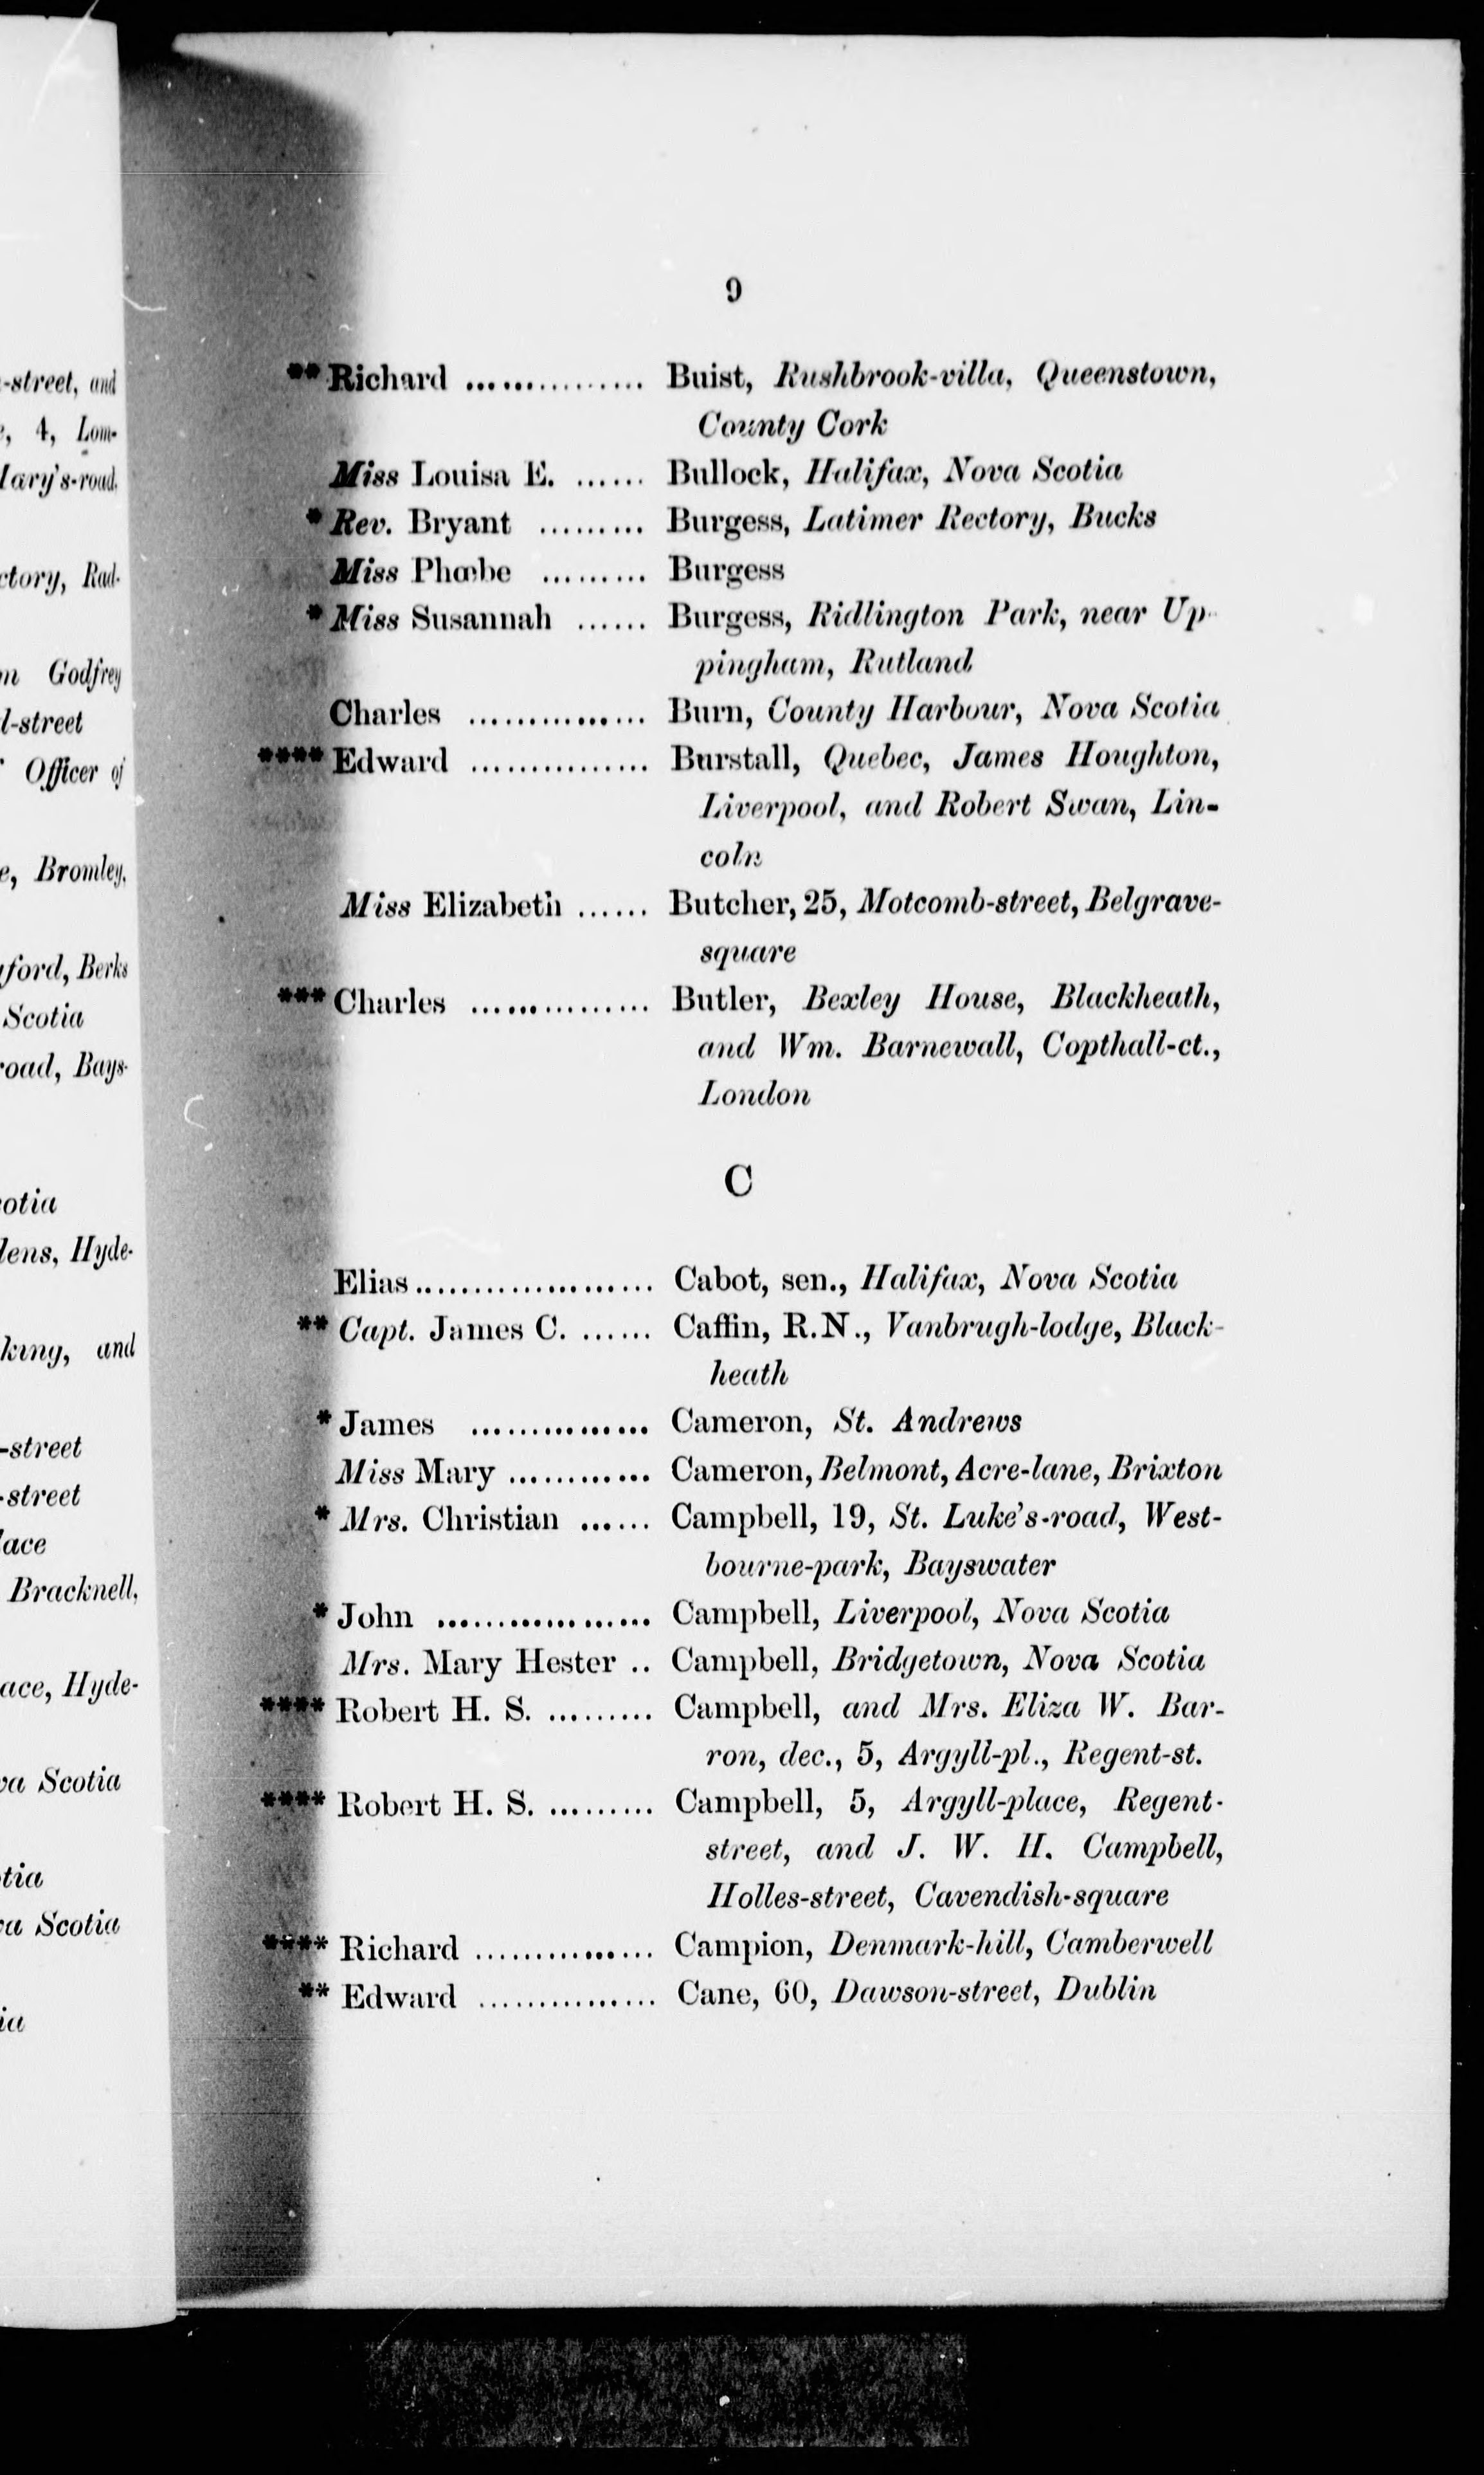 9
** Richard ............... Buist, Rushbrook-villa, Queenstown,
County Cork
Miss Louisa E. ...... Bullock, Halifax, Nova Scotia
* Rev. Bryant ......... Burgess, Latimer Rectory, Bucks
Miss Phœbe ......... Burgess
* Miss Susannah ...... Burgess, Ridlington Park, near Up-
pingham, Rutland
Charles ............... Burn, County Harbour, Nova Scotia
**** Edward ............... Burstall, Quebec, James Houghton,
Liverpool, and Robert Swan, Lin-
coln
Miss Elizabeth ...... Butcher, 25, Motcomb-street, Belgrave-
square
*** Charles ............... Butler, Bexley House, Blackheath,
and Wm. Barnewall, Copthall-ct.,
London
C
Elias.................... Cabot, sen., Halifax, Nova Scotia
** Capt. James C. ...... Caffin, R.N., Vanbrugh-lodge, Black-
heath
* James ............... Cameron, St. Andrews
Miss Mary ............ Cameron, Belmont, Acre-lane, Brixton
* Mrs. Christian ...... Campbell, 19, St. Luke's-road, West-
bourne-park, Bayswater
* John .................. Campbell, Liverpool, Nova Scotia
Mrs. Mary Hester .. Campbell, Bridgetown, Nova Scotia
**** Robert H. S. ......... Campbell, and Mrs. Eliza W. Bar-
ron, dec., 5, Argyll-pl., Regent-st.
**** Robert H. S. ......... Campbell, 5, Argyll-place, Regent-
street, and J. W. H. Campbell,
Holles-street, Cavendish-square
**** Richard ............... Campion, Denmark-hill, Camberwell
** Edward ............... Cane, 60, Dawson-street, Dublin
-street, and
4, Lom-
Mary's-road,
Rad-
Godfrey
-street
Officer of
Bromley,
Berks
Scotia
road, Bays-
Hyde-
and
-street
-street
Bracknell,
Hyde-
Scotia
Scotia